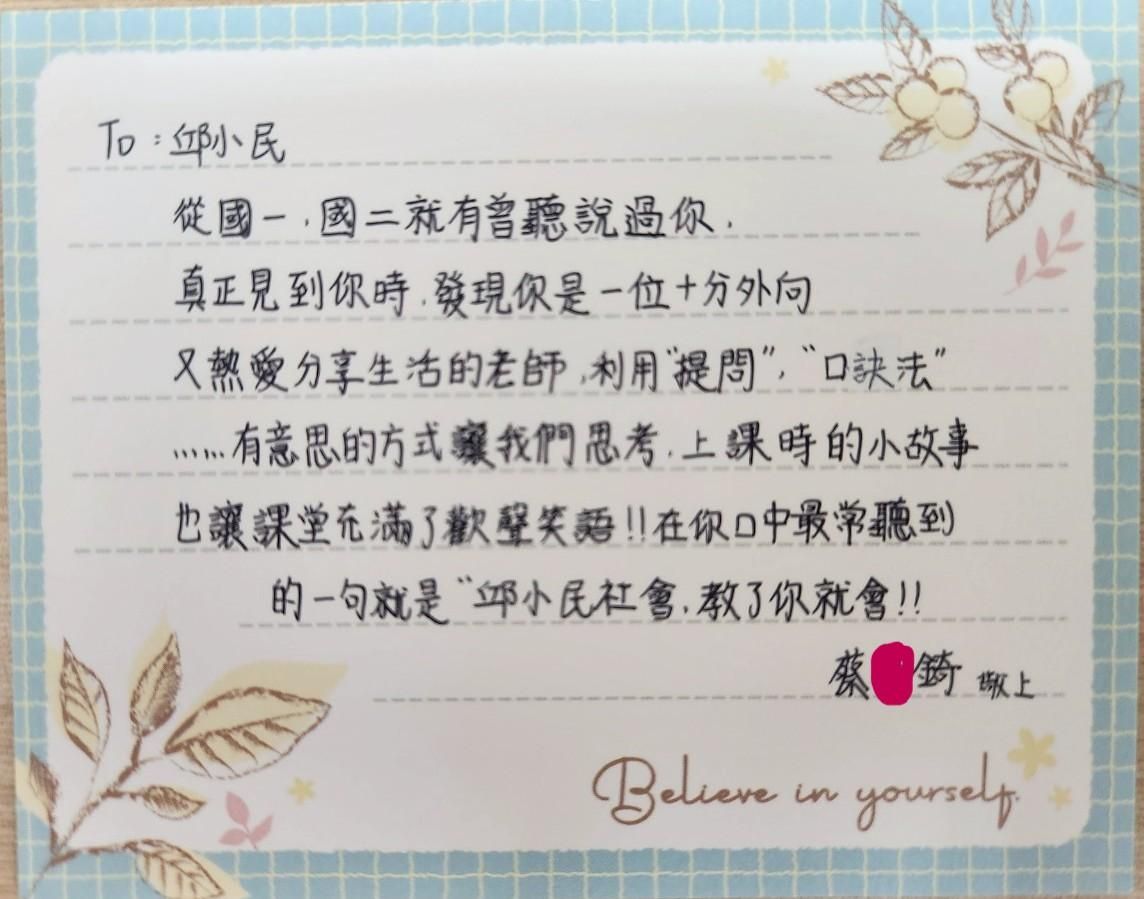 To：邱小民
從國一，國二就有曾聽說過你，
真正見到你時，發現你是一位十分外向
又熱愛分享生活的老師，利用“提問”，“口訣法”
……有意思的方式讓我們思考，上課時的小故事
也讓課堂充滿了歡聲笑語!!在你口中最常聽到
的一句就是“邱小民社會，教了你就會!!
蔡 錡 敬上
Believe in yourself.